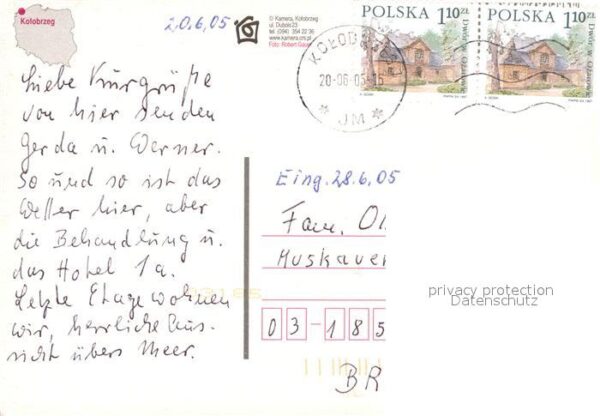 Kołobrzeg
20.6.05
© Kamera, Kołobrzeg
ul. Dubois 23
tel. (094) 354 22 36
www.kamera.crn.pl
POLSKA 1,10 ZŁ
POLSKA 1,10 ZŁ
20-06-05
JM
Liebe Kurgrüße
von hier senden
Gerda u. Werner.
So und so ist das
Wetter hier, aber
die Behandlung u.
das Hotel 1a.
Letzte Etage wohnen
wir, herrliche Aus-
sicht übers Meer.
Eing. 28.6.05
Fam. Ol
Muskauer
privacy protection
Datenschutz
03-185
BR